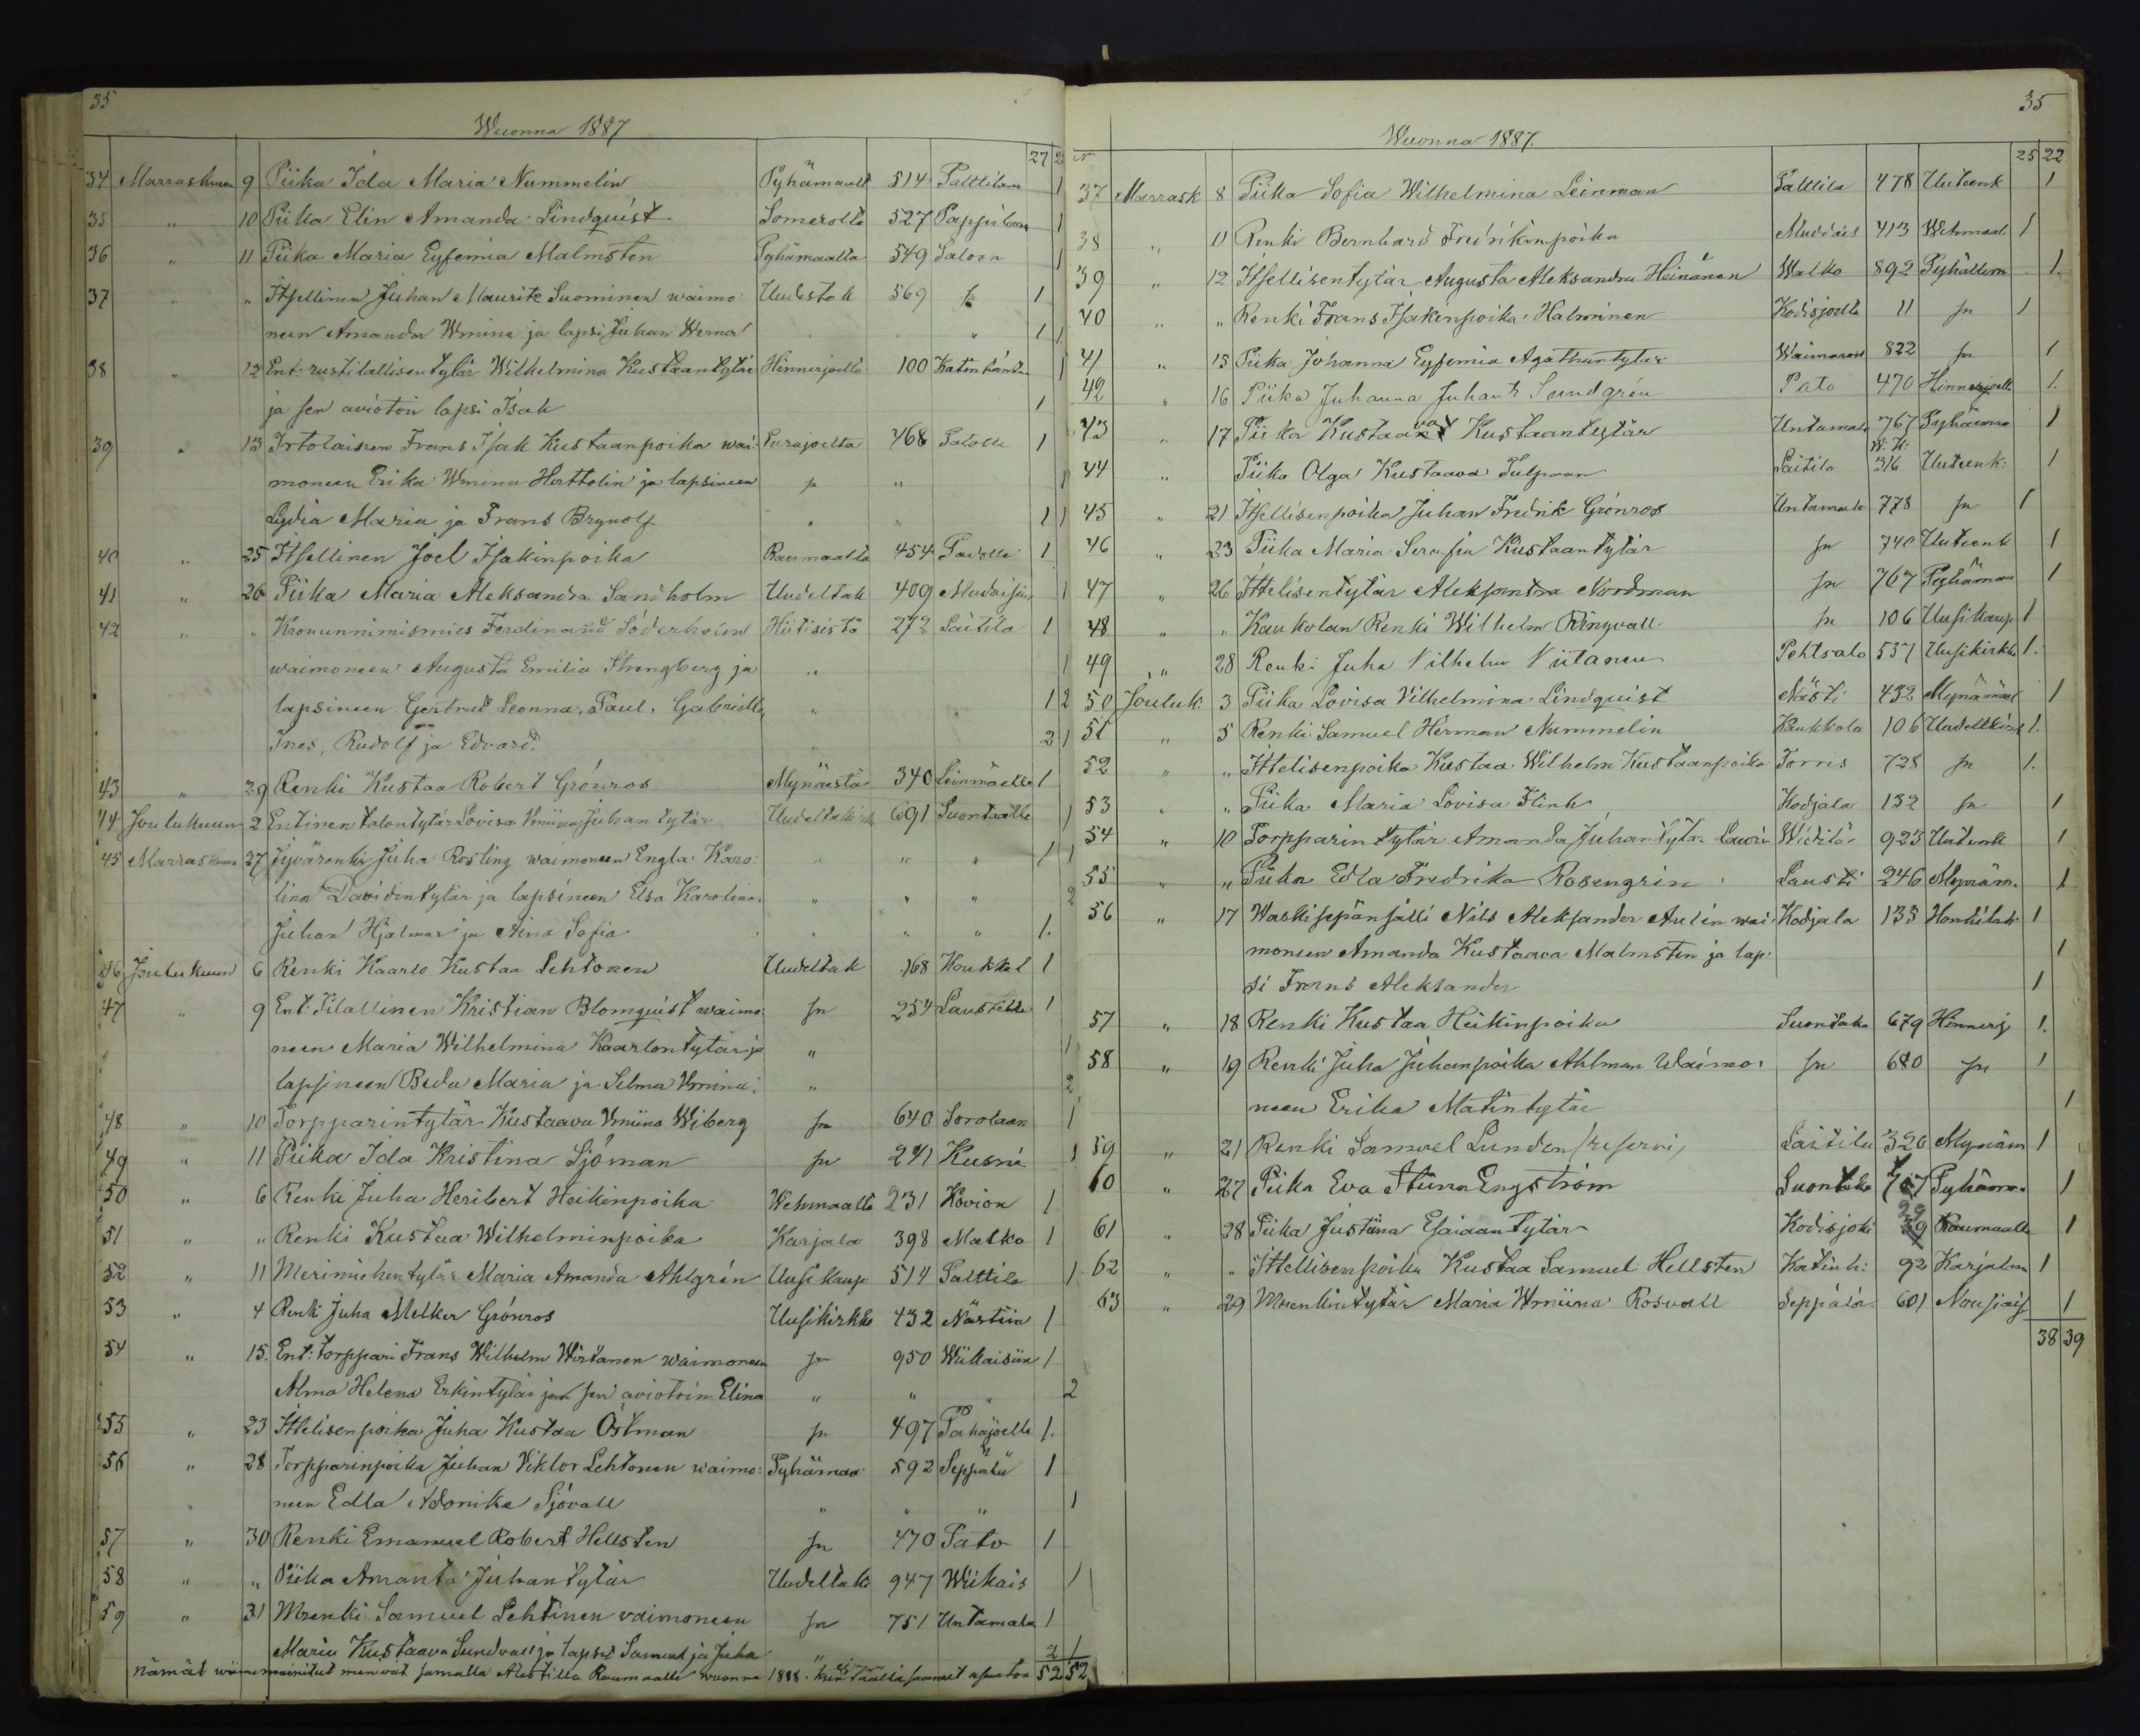 35
Wuonna 1887
27 2
34 Marraskuun 9 Piika Ida Maria Nummelin Pyhämaalt 514 Palttilan 1
35 " 10 Piika Elin Amanda Lindquist Somerolta 527 Pappilan 1
36 " 11 Piika Maria Eyfemia Malmsten Pyhämaalta 549 Saloon 1
37 " " Itsellinen Juhan Mauritz Suominen waimo: Uudestak 569 sn 1
neen Amanda Wmina ja lapsi Juhan Werner " 1 1
38 " 12 Ent. rustitallisentytär Wilhelmina Kustaantytär Hinnerjoelta 100 Katinhänta 1
ja sen aviotoin lapsi Isak 1
39 " 13 Irtolaisen Frans Isak Kustaanpoika wai: Eurajoelta 468 Patolle 1
moneen Erika Wmina Herttolin ja lapsineen sn " 1
Lydia Maria ja Frans Brynolf " " 1 1
40 " 25 Itsellinen Joel Isakinpoika Raumaalta 454 Padolle 1
41 " 26 Piika Maria Aleksandra Sandholm Uudeltak 409 Mudaisiin 1
42 " " Kronunnimismies Ferdinand Söderholm Hiitisistä 272 Laitila 1
waimoneen Augusta Emilia Strengberg ja " 1
lapsineen Gertrud Leonna, Paul, Gabriella, " 1 2
Ines, Rudolf ja Edvard. " 2 1
43 " 29 Renki Kustaa Robert Grönroos Mynäestä 340 Leinmäelle 1
44 Joulukuun 2 Entinen talontytär Lovisa Vmiina Juhantytär Uudeltakirk 691 Suontaalle 1
45 Marraskuun 27 Jyvärenki Juha Rosting waimoneen Engla Karo: " " " 1 1
lina Davidintytär ja lapsineen Elsa Karolina, " " " 2
Juhan Hjalmar ja Aina Sofia " " " 1.
46 Joulukuun 6 Renki Kaarlo Kustaa Lehtonen Uudeltak 168 Koukkel 1
47 " 9 Ent. Tilallinen Kristian Blomquist waimo: sn 254 Laustille 1
neen Maria Wilhelmina Kaarlontytär ja " 1
lapsineen Beda Maria ja Selma Vmina: " 2
48 " 10 Torpparintytär Kustaava Vmiina Wiberg sn 640 Sorolaan 1
49 " 11 Piika Ida Kristina Sjöman sn 241 Kusni 1
50 " 6 Renki Juha Heribert Heikinpoika Wehmaalta 231 Kovion 1
51 " " Renki Kustaa Wilhelminpoika Karjala 398 Malko 1
52 " 11 Merimiehentytär Maria Amanda Ahlgrén Uusikaup 514 Palttila 1
53 " 4 Renki Juha Melker Grönros Uusikirkko 432 Nästiin 1
54 " 15. Ent: torppari Frans Wilhelm Wirtanen waimoneen sn 950 Wiikaisiin 1
Alma Helena Erkintytär ja sen aviotoin Elina " " " 2
55 " 23 Ittelisenpoika Juha Kustaa Östman sn 497 Pahojoelle 1.
56 " 28 Torpparinpoika Juhan Viktor Lehtonen waimo: Pyhämaa 592 Seppälä 1
neen Edla Adonika Sjövall " " " 1
57 " 30 Renki Emanuel Robert Hellsten sn 470 Pato 1
58 " " Piika Amanta Juhantytär Uudeltak 947 Wiikais 1
59 " 31 Mrenki Samuel Lehtinen vaimoneen sn 751 Untamala 1
Maria Kustaava Sundvall ja lapset Samuel ja Juha " 2 1
Nämät wiimemainitut menivät samalla Alestilla Raumaalle wuonna 1888. kun ei täällä saaneet asuntoa 52 52
35
Wuonna 1887.
25 22
37 Marrask 8 Piika Sofia Wilhelmina Leinman Palttila 478 Uuteenk 1
38 " 11 Renki Bernhard Fredrikinpoika Mudais 413 Wehmaal 1
39 " 12 Itsellisentytär Augusta Aleksandra Heinänen Malko 892 Pyhällem 1.
40 " " Renki Frans Isakinpoika Halminen Kodisjoelta 11 sn 1
41 " 15 Piika Johanna Eyfemia Agathantytär Waimaron 822 sn 1
42 " 16 Piika Juhanna Juhant Sundgrén Pato 470 Hinnerjoelle 1.
43 " 17 Piika Kustaava Kustaantytär Untamala 767 Pyhämaa 1
44 " Piika Olga Kustaava Tulpman Laitila W: K: 316 Uuteenk: 1
45 " 21 Itsellisenpoika Juhan Fredrik Grönros Untamala 778 sn 1
46 " 23 Piika Maria Serafia Kustaantytär sn 740 Uuteenk 1
47 " 26 Ittelisentytär Aleksantra Nordman sn 767 Pyhämaa 1
48 " " Kaukolan Renki Wilhelm Ringvall sn 106 Uusikaup 1
49 " 28 Renki Juha Vilhelm Viitanen Pehtsalo 537 Uusikirkko 1.
50 Jouluk 3 Piika Lovisa Vilhelmina Lindquist Nästi 432 Mynämäel 1
51 " 5 Renki Samuel Herman Nummelin Kaukkola 106 Uudellkirk 1.
52 " " Ittelisenpoika Kustaa Wilhelm Kustaanpoika Torris 728 sn 1.
53 " " Piika Maria Lovisa Flink Kodjala 132 sn 1
54 " 10 Torpparintytär Amanda Juhantytär Laurin 923 Uuteenk 1
55 " " Piika Edla Fredrika Rosengrin Lausti 246 Mynäm. 1
56 " 17 Waskisepänsälli Nils Aleksander Aulin wai: Kodjala 133 Honkilah: 1
moneen Amanda Kustaava Malmsten ja lap: 1
si Frans Aleksander 1
57 " 18 Renki Kustaa Heikinpoika Suontaka 679 Hinnerj 1.
58 " 19 Renki Juha Juhanpoika Ahlman Waimo: sn 680 sn 1
neen Erika Matintytär 1
59 " 21 Renki Samuel Lunden (reservi) Laitila 320 Mynäm 1
60 " 27 Piika Eva Stiina Engström Suontaka 707 Pyhämaa 1
61 " 28 Piika Justiina Esaiaantytär Kodisjoki 29 Raumaalle 1
62 " " Ittellisenpoika Kustaa Samuel Hellsten Katinh: 92 Karjalan 1
63 " 29 Mrenkintytär Maria Wmiina Rosvall Seppälä 601 Nousiais 1
38 39